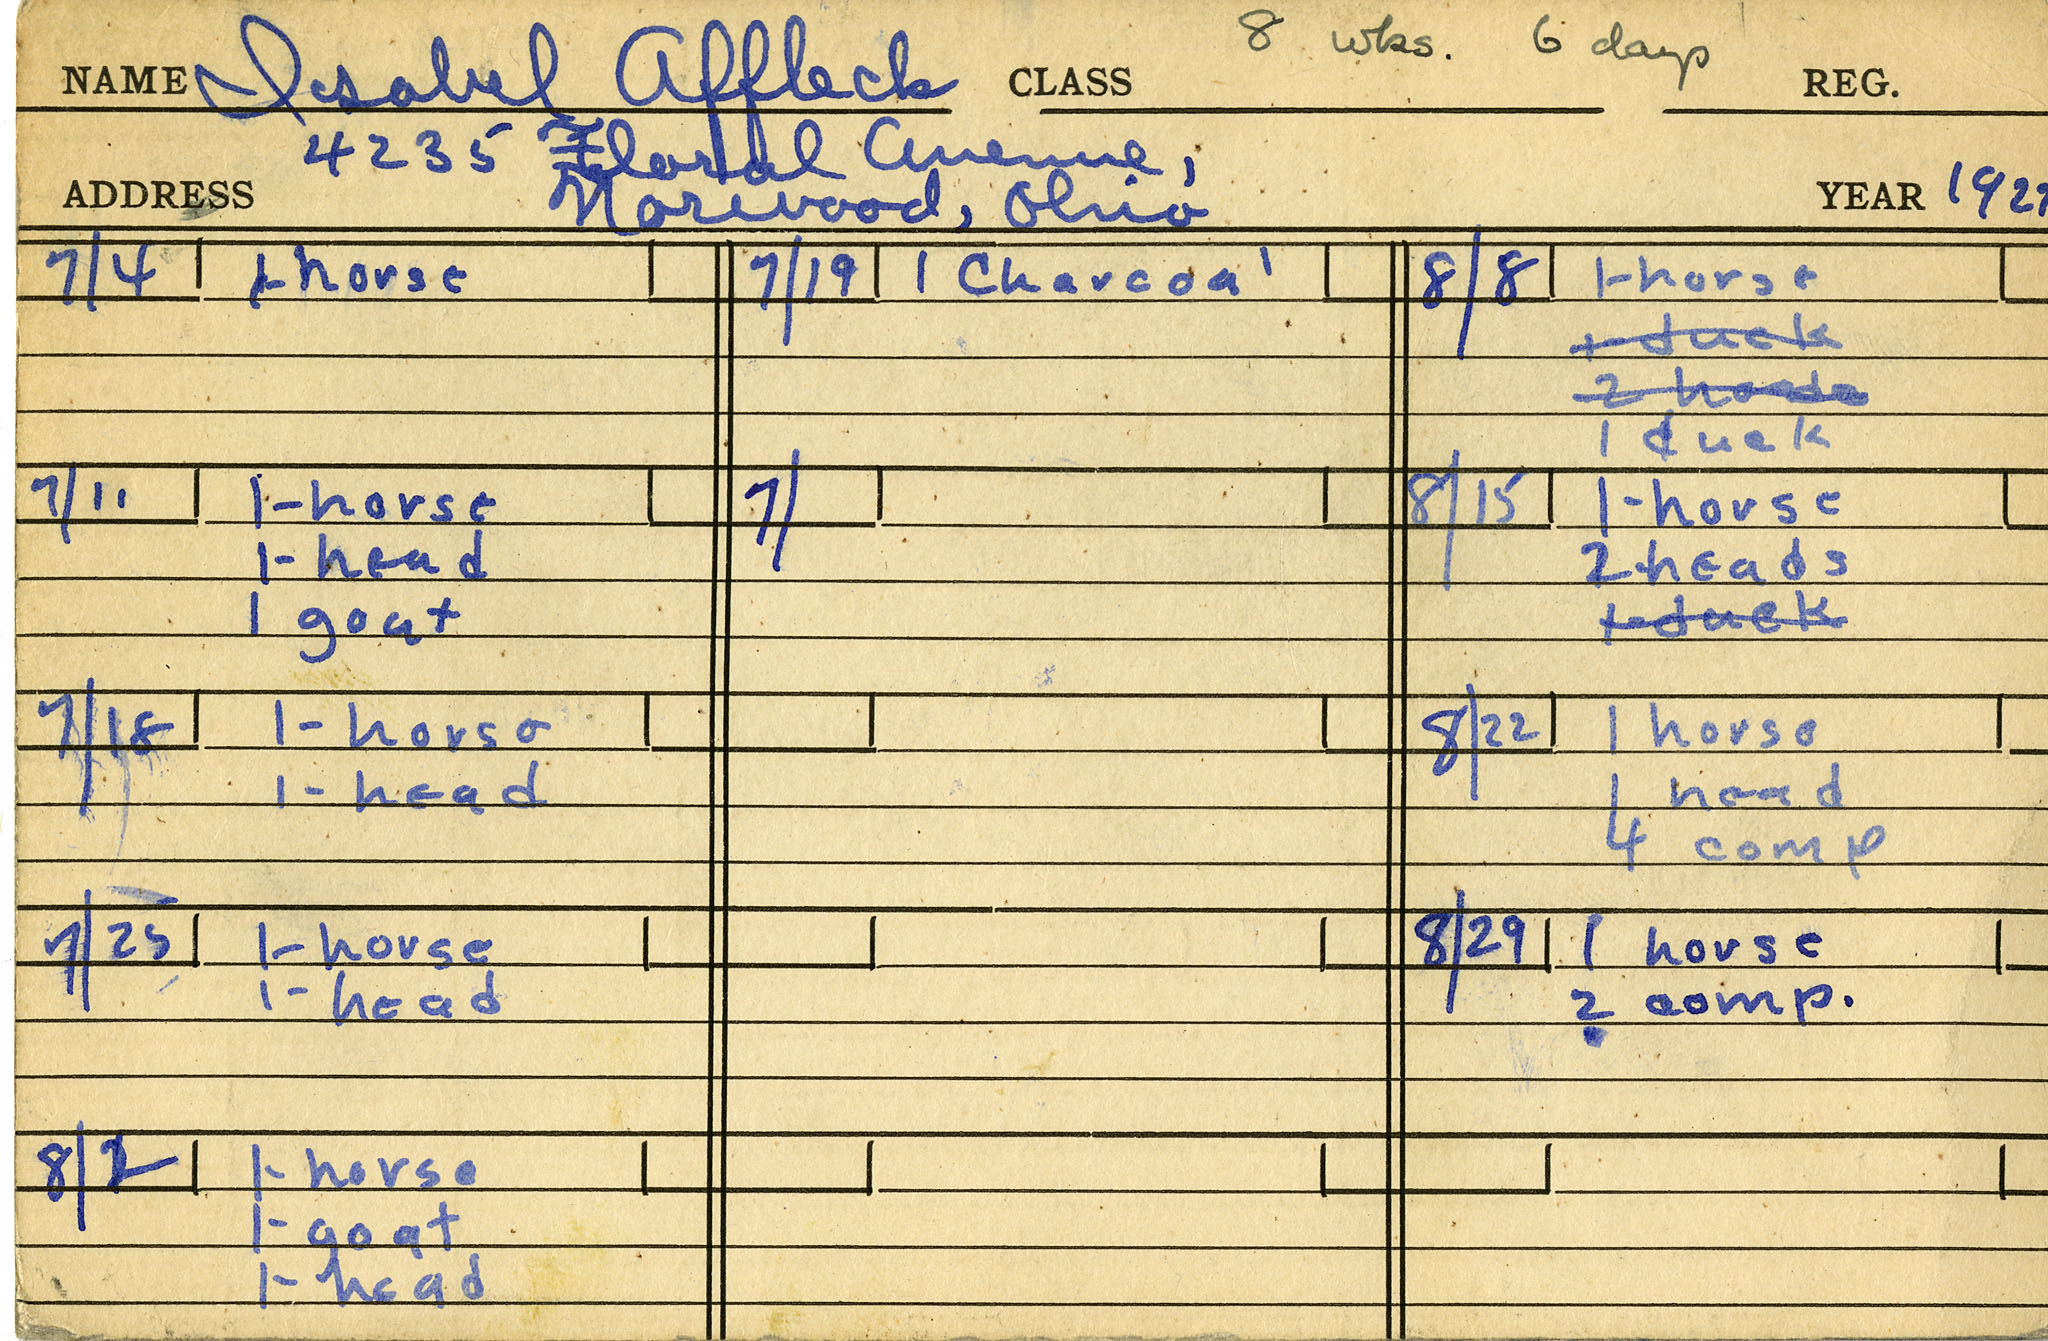 8 wks. 6 days
NAME Isabel Affleck CLASS REG.
4235 Floral Avenue,
ADDRESS Norwood, Ohio YEAR 192
7/4 1-horse
7/11 1-horse
1-head
1 goat
7/18 1-horse
1-head
7/25 1-horse
1-head
8/2 1-horse
1-goat
1-head
7/19 1 Charcoal
7/
8/8 1-horse
1 duck
2 heads
1 duck
8/15 1-horse
2-heads
1-duck
8/22 1 horse
1 head
4 comp
8/29 1 horse
2 comp.